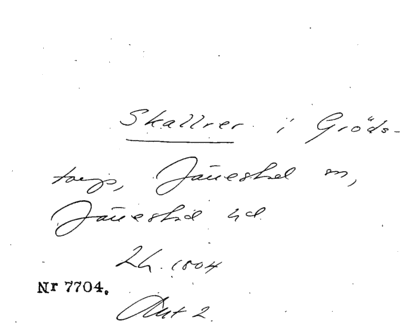 Skallrer i Gröds-
torp, Järrestad sn,
Järrestad hd
Lh. 1804
Nr 7704.
Akt 2.